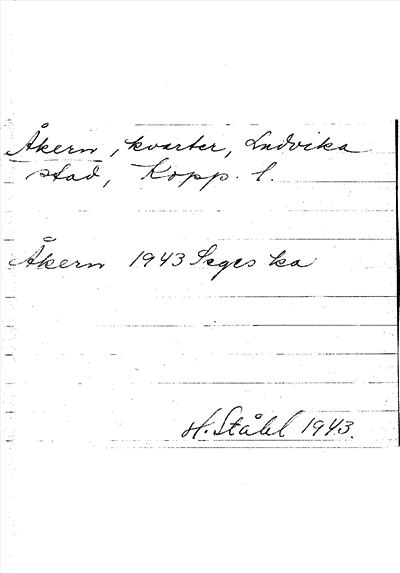 Åkern, kvarter, Ludvika
stad, Kopp. l.
Åkern 1943 Seges ka
H. Ståhl 1943.